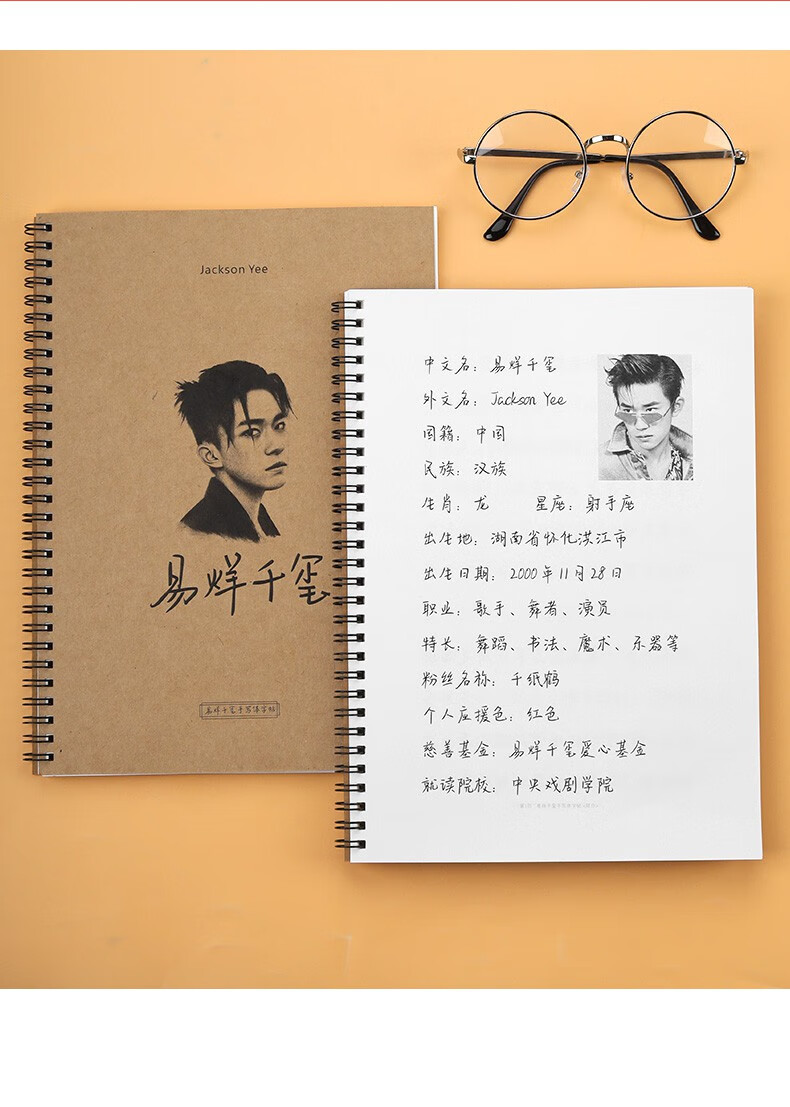 Jackson Yee
易烊千玺
易烊千玺手写体字帖
中文名：易烊千玺
外文名：Jackson Yee
国籍：中国
民族：汉族
生肖：龙 星座：射手座
出生地：湖南省怀化洪江市
出生日期：2000年11月28日
职业：歌手、舞者、演员
特长：舞蹈、书法、魔术、乐器等
粉丝名称：千纸鹤
个人应援色：红色
慈善基金：易烊千玺爱心基金
就读院校：中央戏剧学院